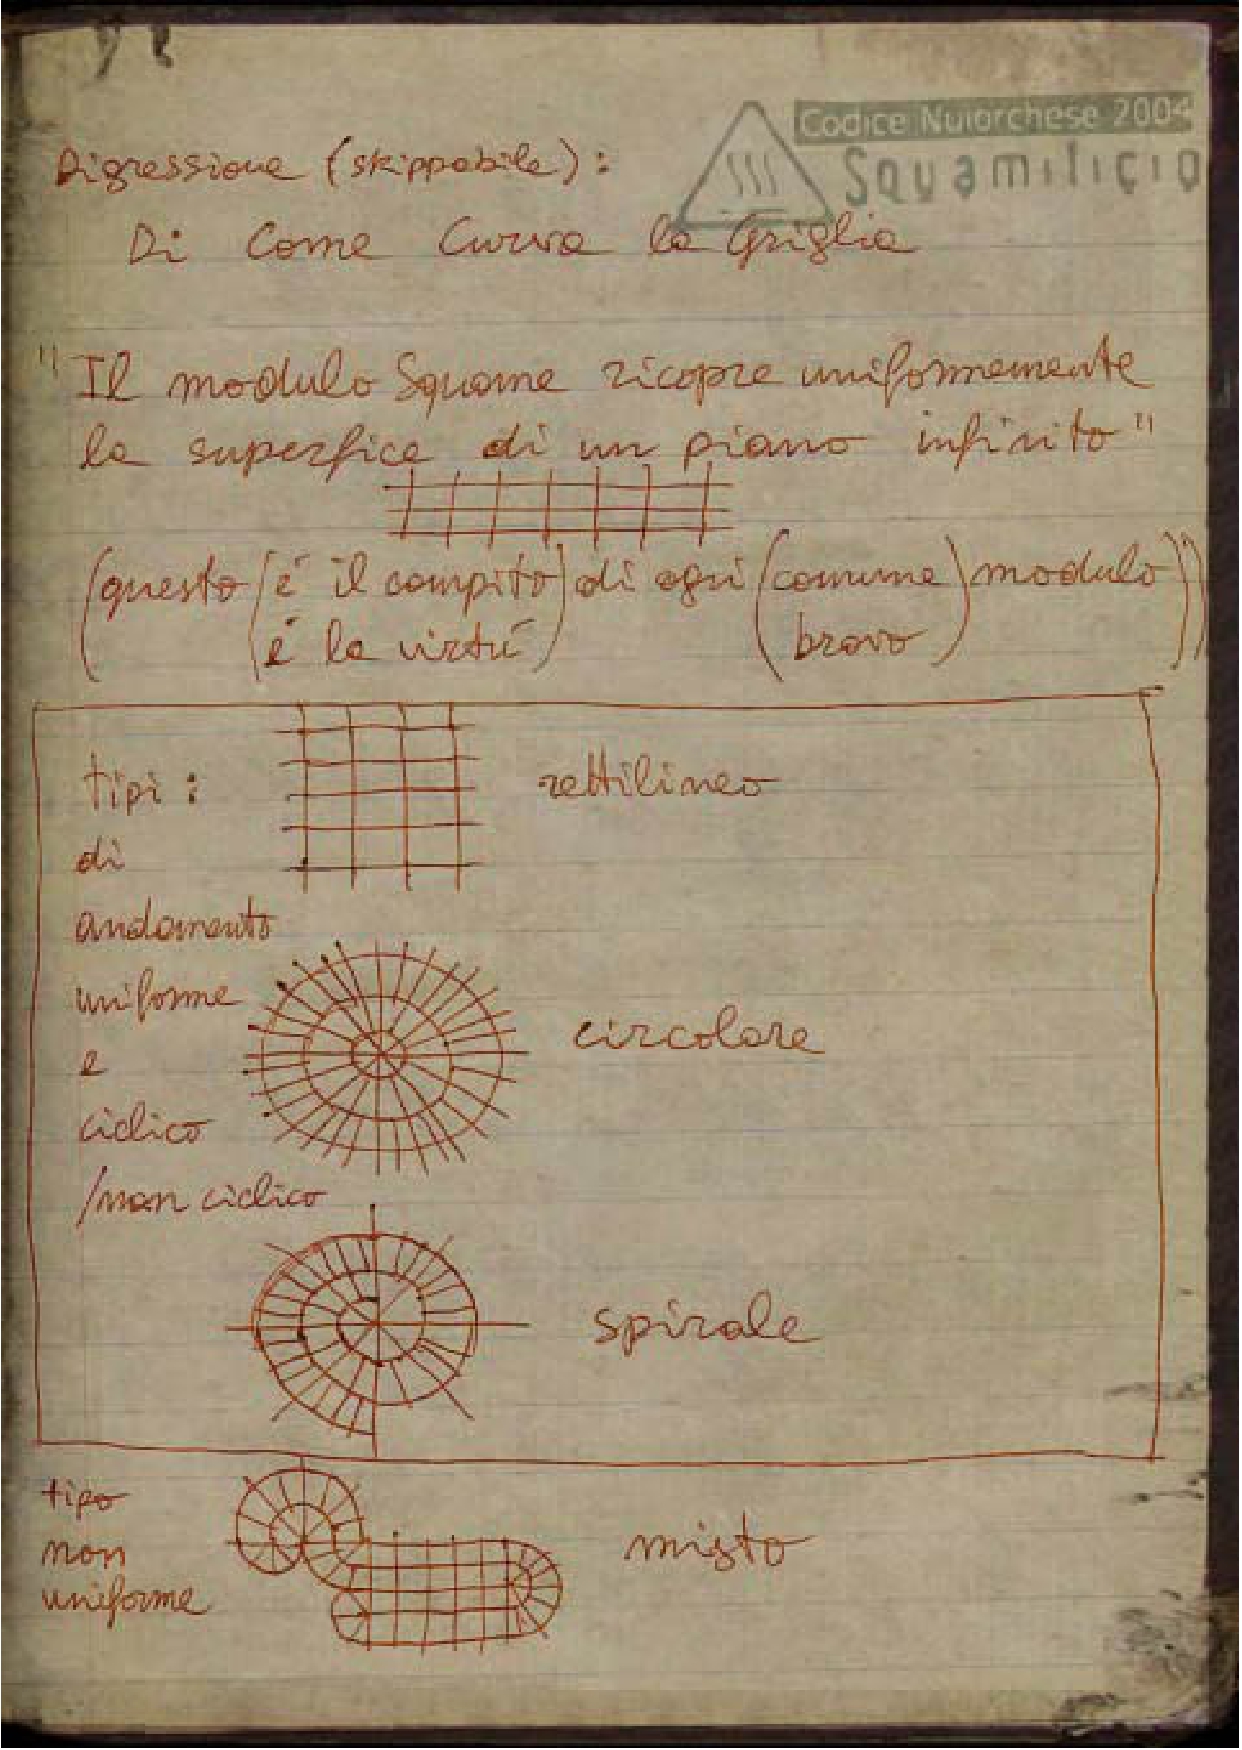 Codice Nuiorchese 2004
Squamilicio
Digressione (skippabile):
Di Come Curva la Griglia
"Il modulo Squame ricopre uniformemente
la superfice di un piano infinito"
(questo (é il compito) di ogni (comune) modulo))
(é la virtú) (bravo)
tipi: rettilineo
di
andamento
uniforme
e circolare
ciclico
/non ciclico
spirale
tipo
non misto
uniforme